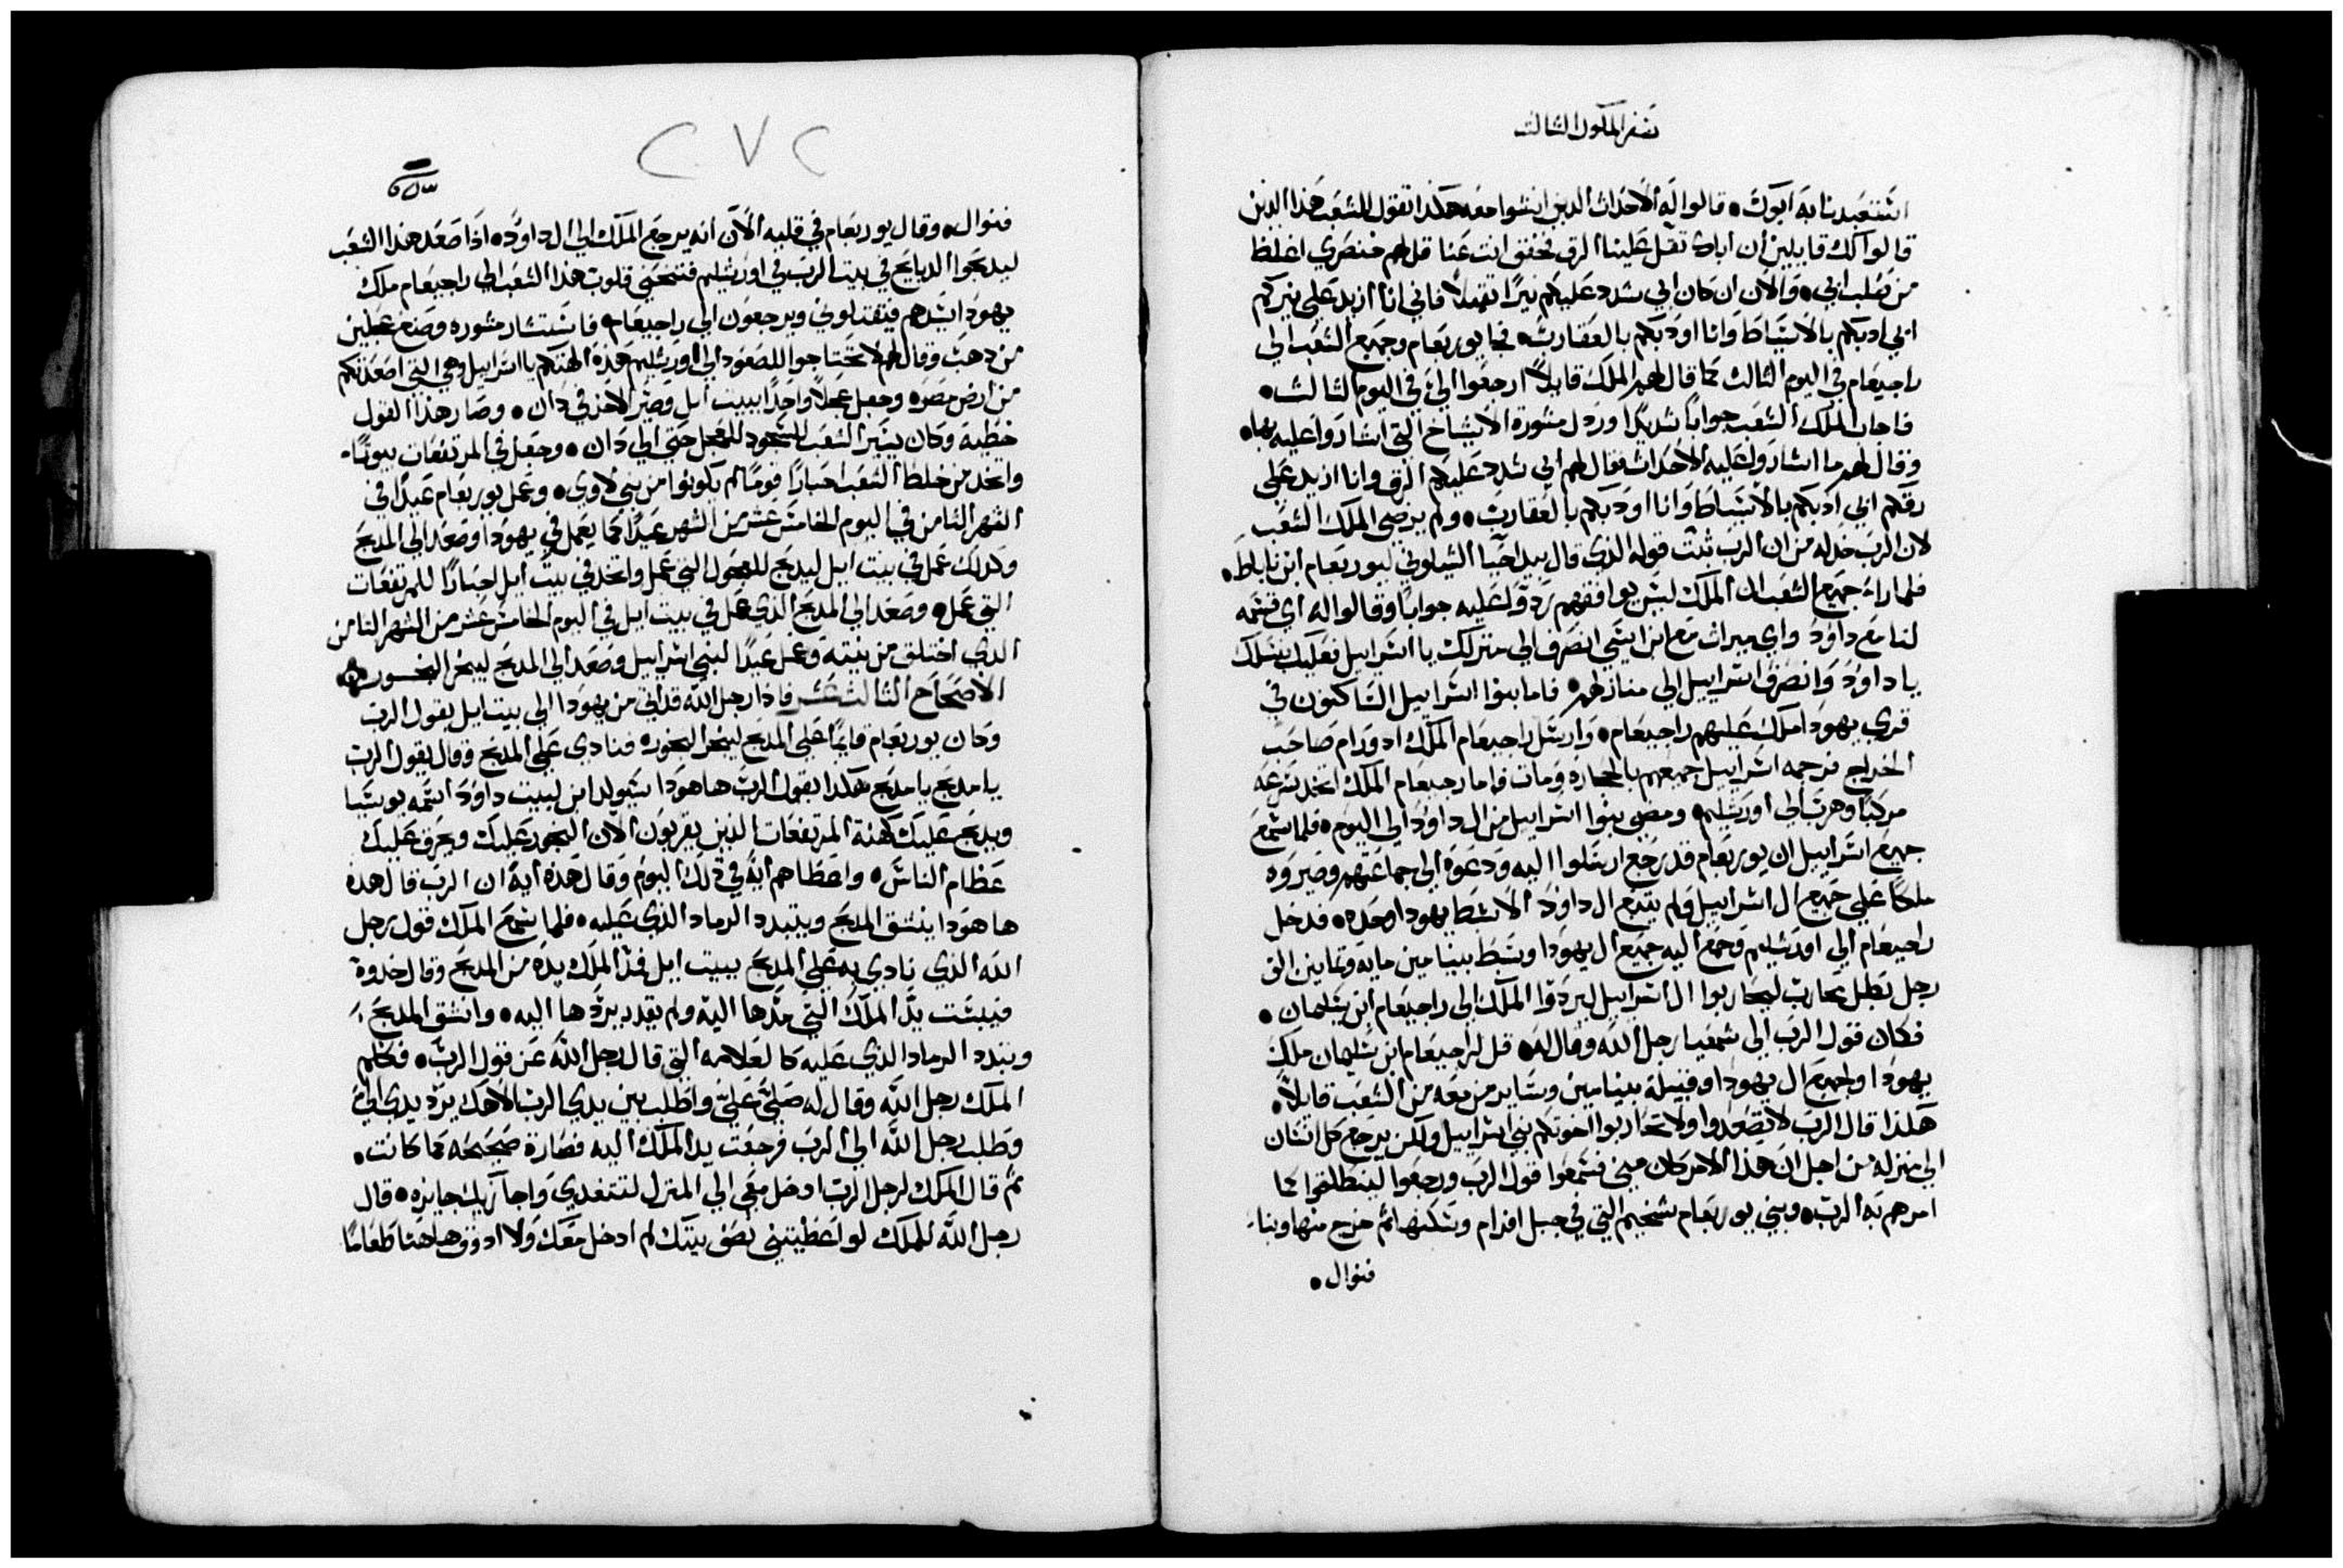 سفر الملوك الثالث
استعبدنا به ابوك • قالوا له الاحداث الدين انشوا معه هكدا تقول للشعب هذا الدين
قالوا لك قايلين ان اباك ثقل علينا الرق فخفف انت عنا قل لهم خنصري اغلظ
من صلب ابي • والان ان كان ابي شدد عليكم نيرًا ثقيلاً فاني انا ازيد علي نيركم
ابي ادبكم بالاسياط وانا اودبكم بالعقارب • فجا يوربعام وجميع الشعب الي
راجبعام في اليوم الثالث كما قال لهم الملك قايلاً ارجعوا الي في اليوم الثالث •
فاجاب الملك الشعب جوابًا شديدًا ورذل مشورة الاشياخ التي اشاروا عليه بها •
وقال لهم ما اشاروا عليه الاحداث فقال لهم ابي شدد عليكم الرق وانا ازيد علي
رقكم ابي ادبكم بالاسياط وانا اودبكم بالعقارب • ولم يرضي الملك الشعب
لان الرب خدله من ان الرب ثبت قوله الذي قال بيد احيا الشيلوني ليوربعام ابن ناباط •
فلما راء جميع الشعب ان الملك ليس يوافقهم ردوا عليه جوابًا وقالوا له اي قسمه
لنا مع داوُد واي ميراث مع ابن ايسي انصرف الي منزلك يا اسراييل فعليك بيتك
يا داوُد وانصرف اسراييل الي منازلهم • فاما بنوا اسراييل الساكنون في
قري يهودا ملك عليهم راجبعام • وارسل راجبعام الملك ادورام صاحب
الخراج فرجمه اسراييل جميعهم بالحجارة ومات فاما رجبعام الملك اتخد بسرعه
مركبًا وهرب الي اورشليم • ومضي بنوا اسراييل من ال داوُد الي اليوم • فلما سمع
جميع اسراييل ان يوربعام قد رجع ارسلوا اليه ودعوه الي جماعتهم وصيروه
ملكًا علي جميع ال اسراييل ولم يتبع ال داوُد الا سبط يهودا وحده • فدخل
راجبعام الي اورشليم وجمع اليه جميع ال يهودا وسبط بنيامين مايه وثمانين الف
رجل بطل محارب ليحاربوا ال اسراييل ليردوا الملك الي راجبعام ابن سليمان •
فكان قول الرب الي شمعيا رجل الله وقال له • قل لراجبعام ابن سليمان ملك
يهودا ولجميع ال يهودا وقبيلة بنيامين وساير من معه من الشعب قايلاً •
هكذا قال الرب لا تصعدوا ولا تحاربوا اخوتكم بني اسراييل ولكن يرجع كل انسان
الي منزله من اجل ان هذا الامر كان مني فسمعوا قول الرب ورجعوا لينطلقوا كما
امرهم به الرب • وبني يوربعام شخيم التي في جبل افرام وسكنها ثم خرج منها وبناء
فنوال •
٢٧٢
فنوال • وقال يوربعام في قلبه الان انه يرجع الملك الي ال داوُد • اذا صعد هذا الشعب
ليدبحوا الدبايح في بيت الرب في اورشليم فتنحني قلوب هذا الشعب الي راجبعام ملك
يهودا سيدهم فيقتلوني ويرجعون الي راجبعام فاستشار مشوره وصنع عجلين
من دهب وقال لهم لا تحتاجوا للصعود الي اورشليم هذه الهتكم يا اسراييل وهي التي اصعدتكم
من ارض مصر • وجعل عجلاً واحدًا ببيت ايل وصير الاخر في دان • وصار هذا القول
خطية وكان يسير الشعب للسجود للعجل حتي الي دان • وجعل في المرتفعات بيوتًا •
واتخد من خلط الشعب احبارًا قومًا لم يكونوا من بني لاوي • وعمل يوربعام عيدًا في
الشهر الثامن في اليوم الخامس عشر من الشهر عيدًا كما يعمل في يهودا وصعد الي المدبح
وكدلك عمل في بيت ايل ليدبح للعجول التي عمل واتخد في بيت ايل احبارًا للمرتفعات
التي عمل • وصعد الي المدبح الذي عمل في بيت ايل في اليوم الخامس عشر من الشهر الثامن
الدي اختلق من نيته وعمل عيدًا لبني اسراييل وصعد الي المدبح ليبخر البخور
الاصحاح الثالث عشر فاذا رجل الله قد اتي من يهودا الي بيت ايل بقول الرب
وكان يوربعام قايمًا علي المدبح ليبخر البخور • فنادي علي المدبح وقال بقول الرب
يا مدبح يا مدبح هكدا يقول الرب ها هودا سيولد ابن لبيت داوُد اسمه يوسيا
ويدبح عليك كهنة المرتفعات الذين يقربون الان البخور عليك ويحرق عليك
عظام الناس • واعطاهم ايه في ذلك اليوم وقال هذه ايه ان الرب قال هده
ها هودا ينشق المدبح ويتبدد الرماد الذي عليه • فلما سمع الملك قول رجل
الله الذي نادي به علي المدبح ببيت ايل فمد الملك يده من المدبح وقال خدوه
فيبست يد الملك التي مدها اليه ولم يقدر يردها اليه • وانشق المدبح
وتبدد الرماد الذي عليه كالعلامه التي قال رجل الله عن قول الرب • فكلم
الملك رجل الله وقال له صلي علي واطلب بين يدي الرب الاهك يرد يدي الي
وطلب رجل الله الي الرب فرجعت يد الملك اليه فصارة صحيحه كما كانت •
ثم قال الملك لرجل الرب ادخل معي الي المنزل لتتغدي واجازيك جايزه • قال
رجل الله للملك لو اعطيتني نصف بيتك لم ادخل معك ولا ادوق هاهنا طعامًا